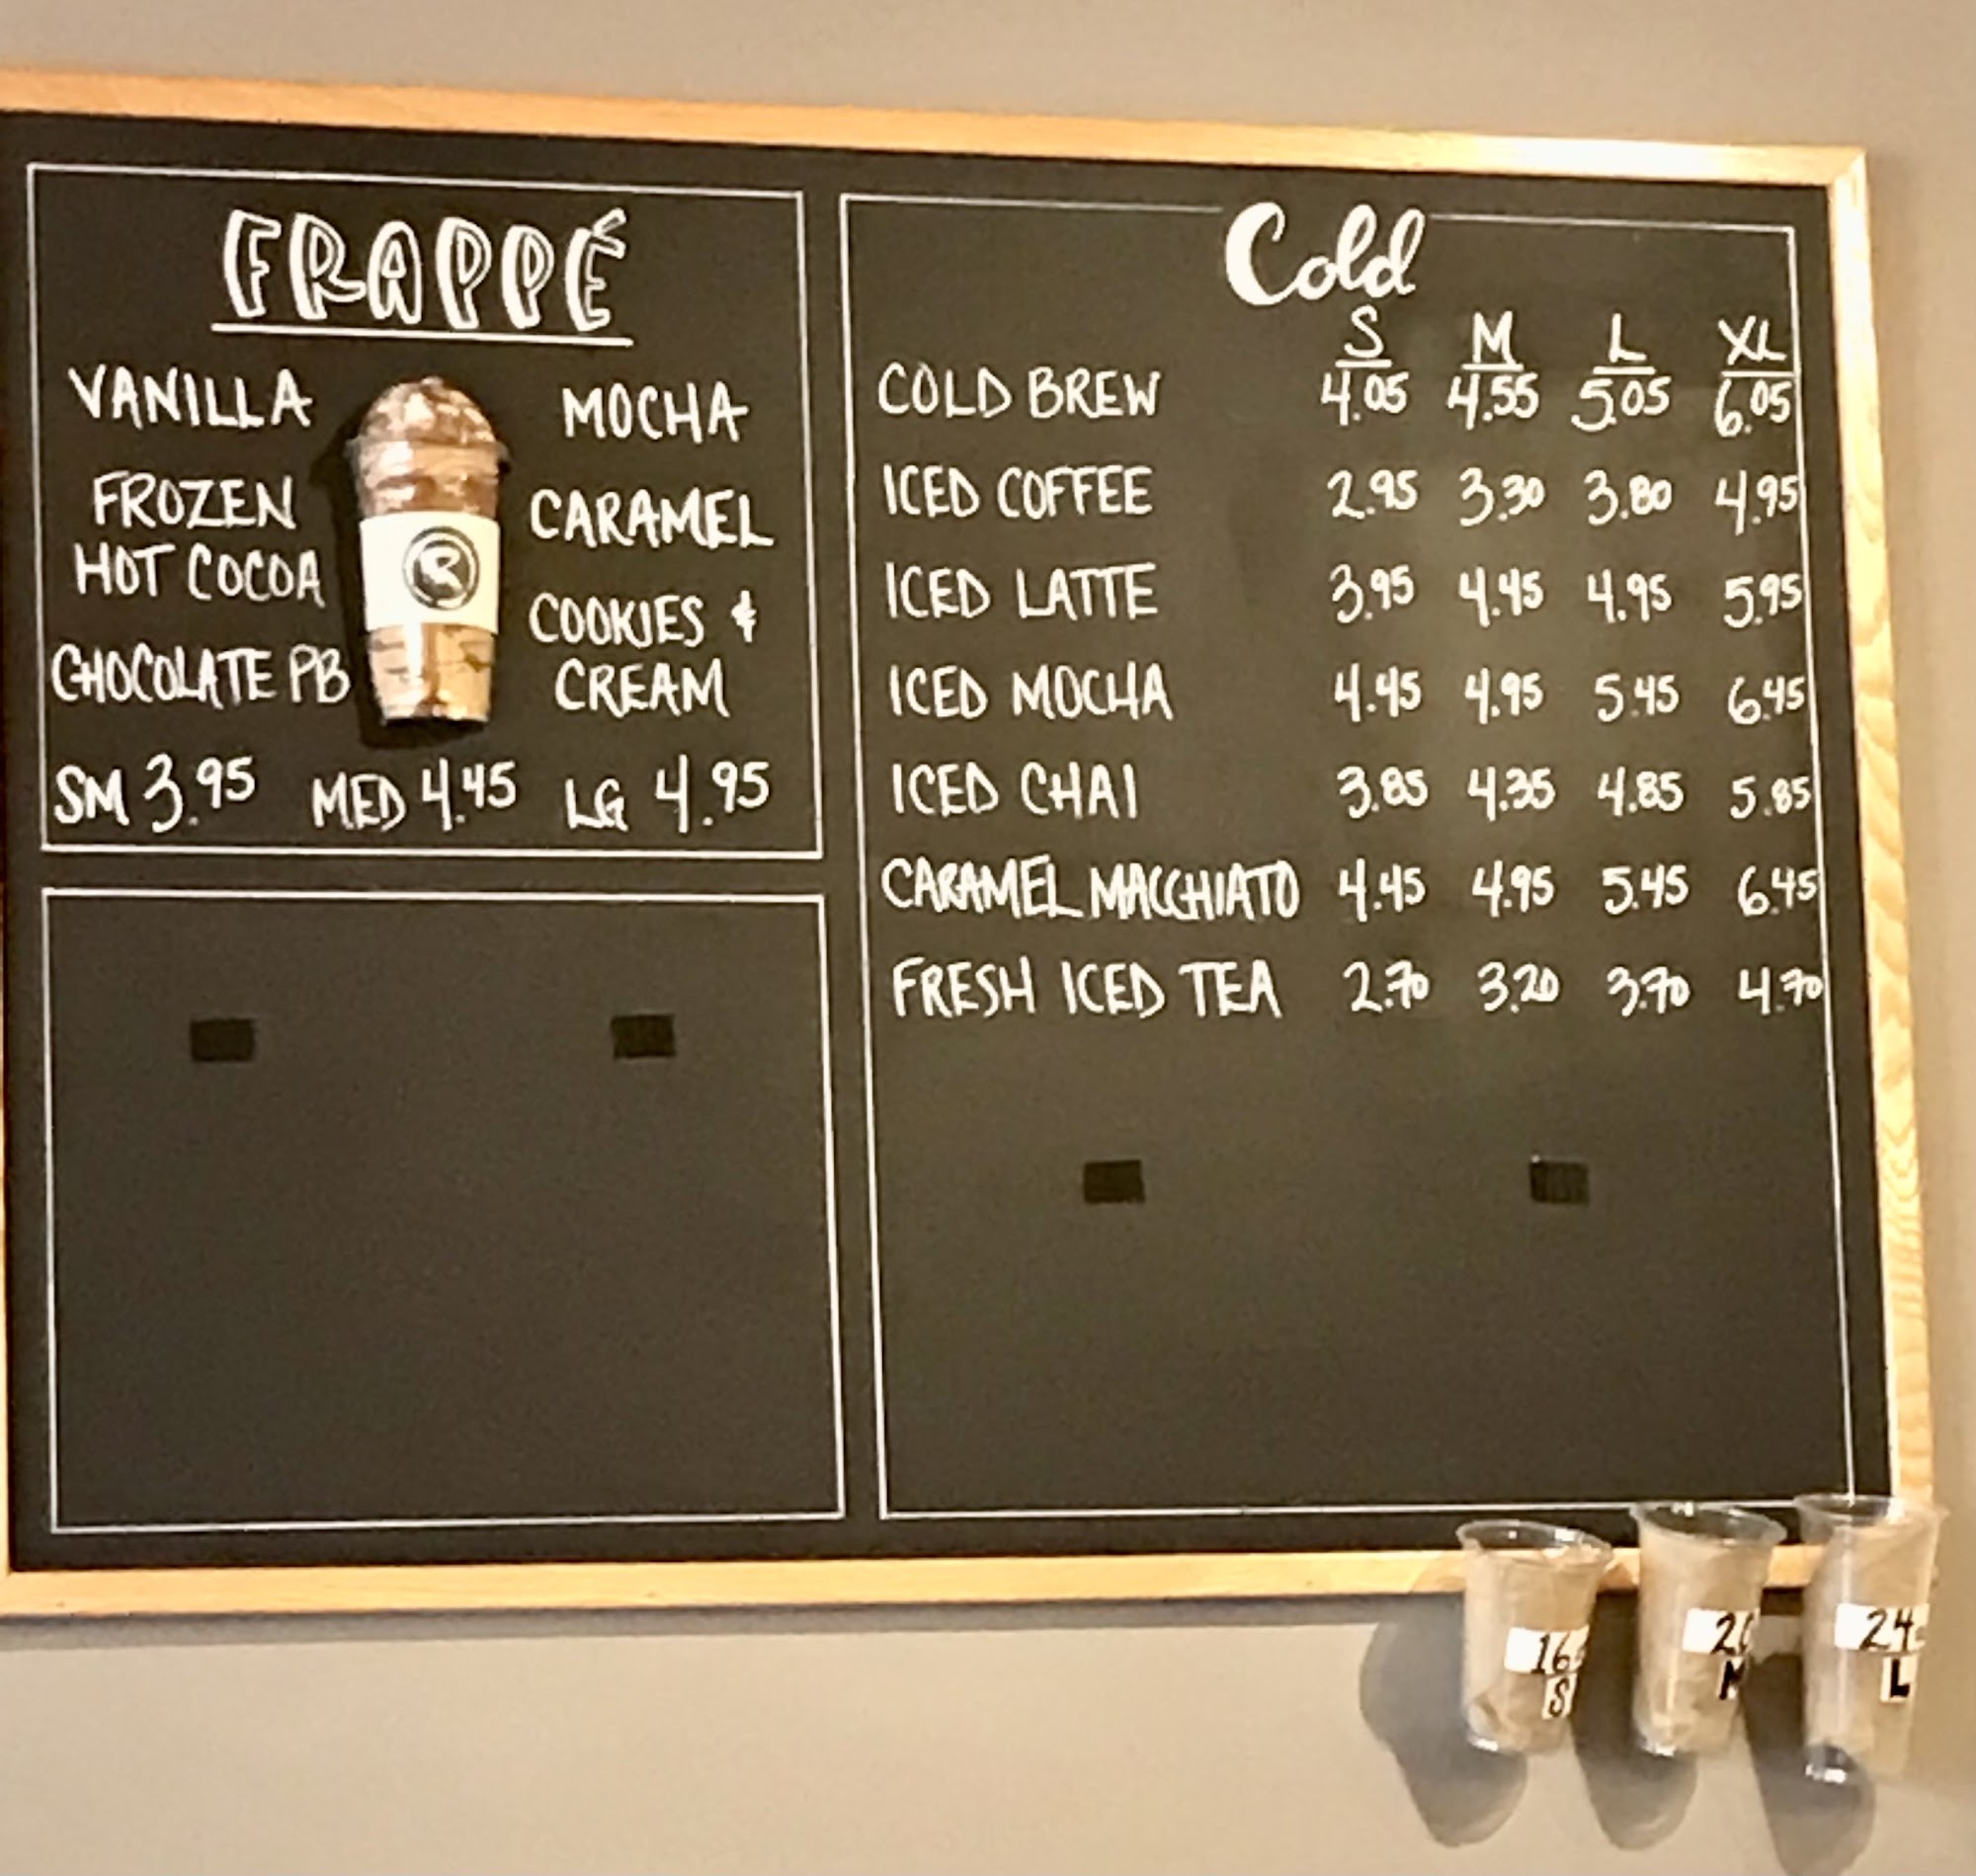 FRAPPÉ
VANILLA
FROZEN
HOT COCOA
CHOCOLATE PB
MOCHA
CARAMEL
COOKIES &
CREAM
R
SM 3.95 MED 4.45 LG 4.95
Cold
S M L XL
COLD BREW 4.05 4.55 5.05 6.05
ICED COFFEE 2.95 3.30 3.80 4.95
ICED LATTE 3.95 4.45 4.95 5.95
ICED MOCHA 4.45 4.95 5.45 6.45
ICED CHAI 3.85 4.35 4.85 5.85
CARAMEL MACCHIATO 4.45 4.95 5.45 6.45
FRESH ICED TEA 2.70 3.20 3.70 4.70
16
S
20
M
24
L